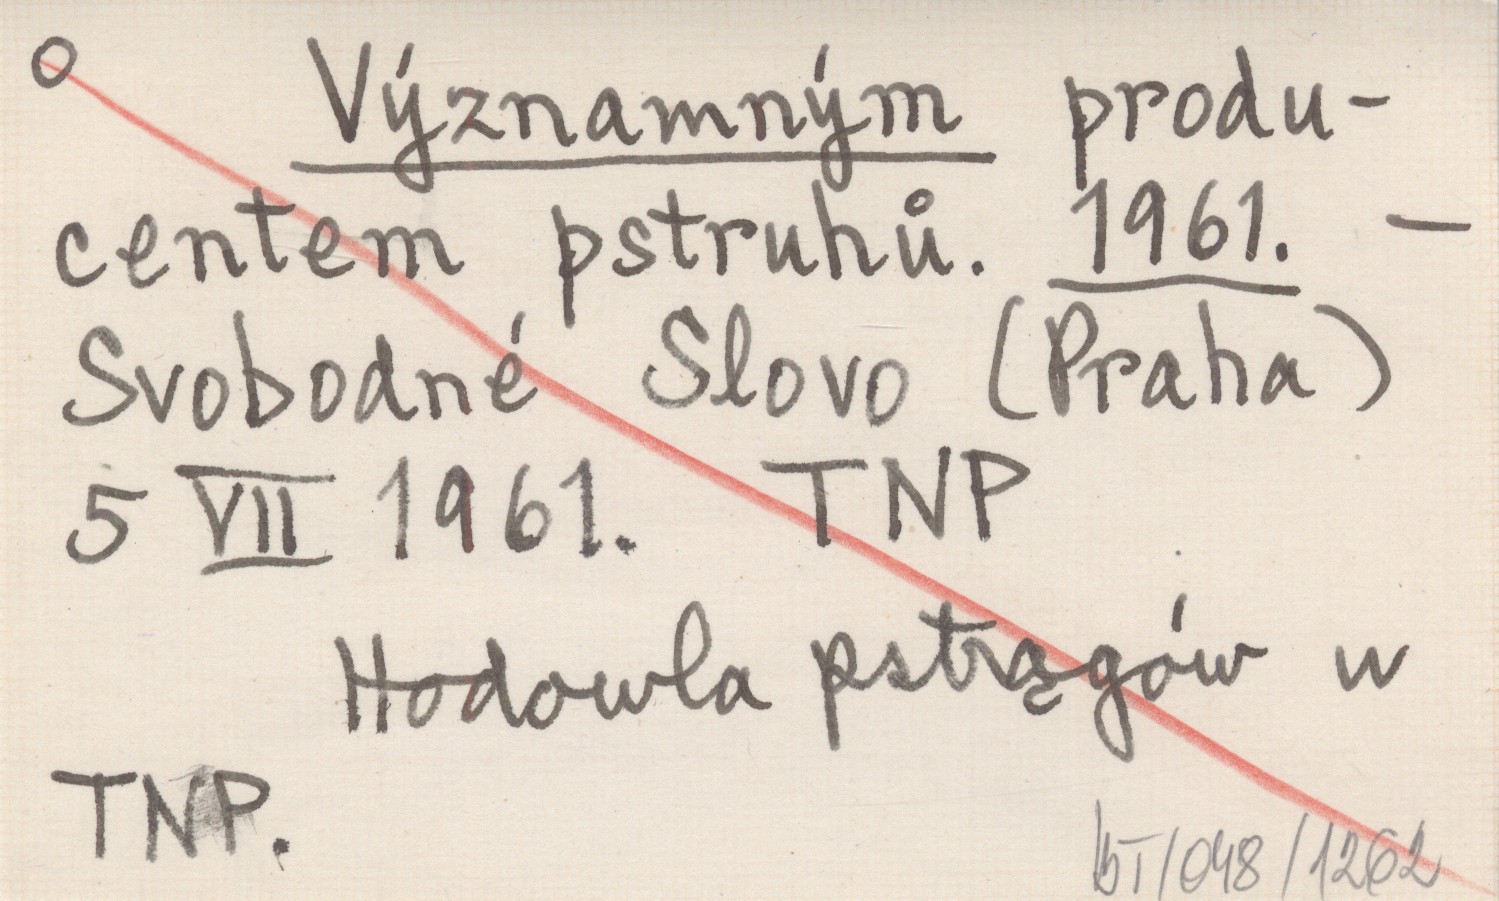 Významným produ-
centem pstruhů. 1961. —
Svobodné Slovo (Praha)
5 VII 1961. TNP
Hodowla pstrągów w
TNP.
bT/048/1262